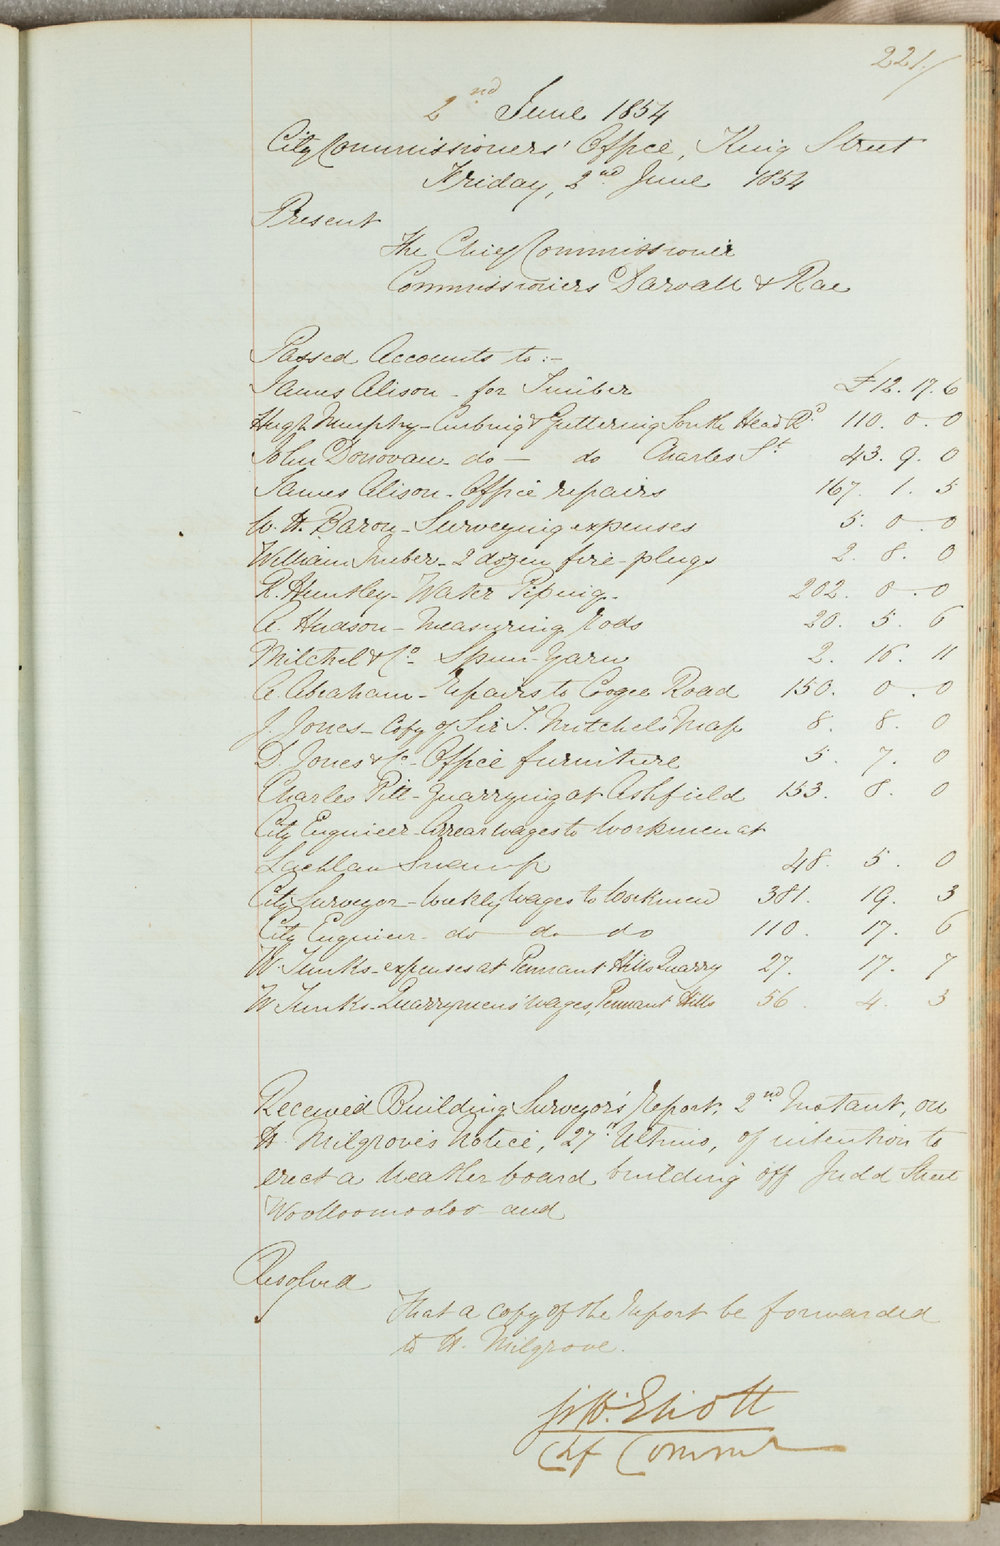 221./
2nd June 1854
City Commissioners' Office, King Street
Friday, 2nd June 1854
Present
The Chief Commissioner
Commissioners Darvall & Rae
Passed Accounts to:-
James Alison - for Timber £12. 17. 6
Hugh Murphy - Curbing & Guttering South Head Rd 110. 0. 0
John Donovan - do - do Charles St 43. 9. 0
James Alison - Office repairs 167. 1. 5
W. H. Baron - Surveying expenses 5. 0. 0
William - 2 dozen fire-plugs 2. 8. 0
R. Huntley - Water Piping - 202. 0. 0
A. Hudson - Measuring rods 20. 5. 6
Mitchel & Co - Spun-Yarn 2. 16. 11
A Abraham - Repairs to Coogee Road 150. 0. 0
J. Jones - Copy of Sir T. Mitchels Map 8. 8. 0
D. Jones & Co - Office furniture 5. 7. 0
Charles Pitt - Quarrying at Ashfield 153. 8. 0
City Engineer - Arrear wages to Workmen at
Lachlan Swamp 48. 5. 0
City Surveyor - Weekly Wages to Workmen 381. 19. 3
City Engineer - do do do 110. 17. 6
W. Tunks - expenses at Pennant Hills Quarry 27. 17. 7
W. Tunks - Quarrymens' wages, Pennant Hills 56. 4. 3
Received Building Surveyor's Report, 2nd Instant, on
H. Milgrove's Notice, 27th Ultimo, of intention to
erect a weather board building off Judd Street
Woolloomooloo and
Resolved
That a copy of the Report be forwarded
to H. Milgrove.
G. Eliott
Chf Commr